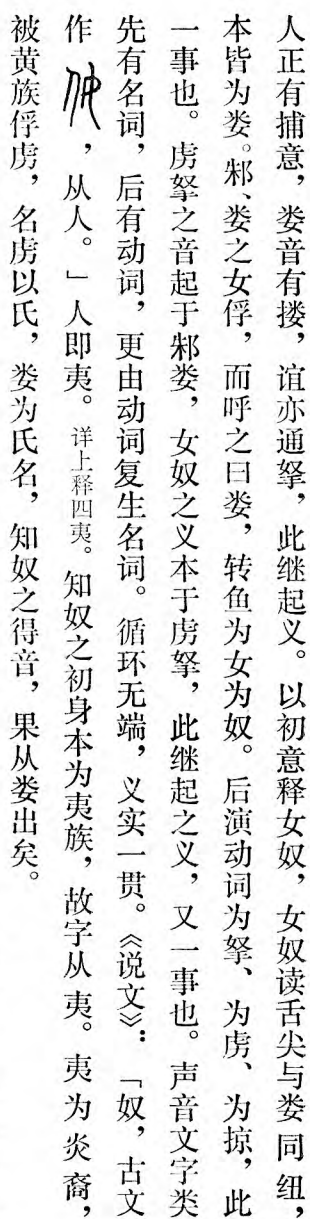 人正有捕意，娄音有搂，谊亦通拏，此继起义。以初意释女奴，女奴读舌尖与娄同纽，
本皆为娄。邾、娄之女俘，而呼之曰娄，转鱼为女为奴。后演动词为拏、为虏、为掠，此
一事也。虏拏之音起于邾娄，女奴之义本于虏拏，此继起之义，又一事也。声音文字类
先有名词，后有动词，更由动词复生名词。循环无端，义实一贯。《说文》：「奴，古文
作，从人。」人即夷。详上释四夷。知奴之初身本为夷族，故字从夷。夷为炎裔，
被黄族俘虏，名虏以氏，娄为氏名，知奴之得音，果从娄出矣。